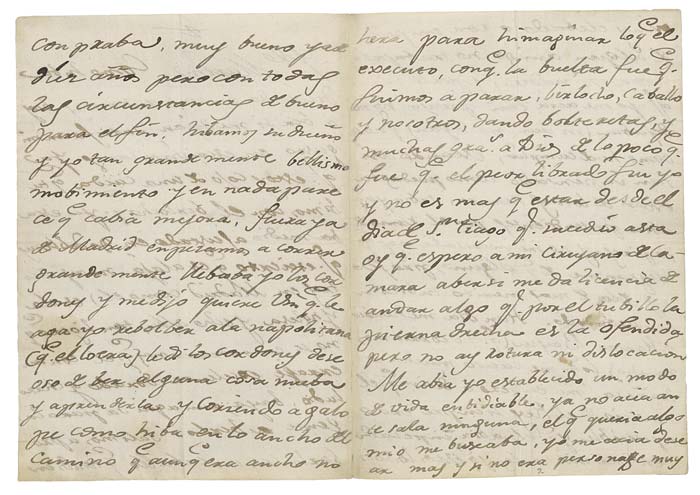 conpraba, muy bueno ya de
diez años pero con todas
las circunstancias de bueno
para el fin, hibamos su dueño
y yo tan grandemente bellisimo
mobimiento y en nada pare
ce q.e cabia mejora, fuera ya
de Madrid enpezamos a correr
grandemente llebaba yo los cor
dones y me dijo quiere Vm q.e le
aga yo rebolber a la napolitana
(q.e el lo era) le di los cordones dese
oso de ber alguna cosa nueba
y aprenderla y corriendo a galo
pe como hiba en lo ancho del
camino q.e aunq.e era ancho no
hera para himaginar lo q.e el
executo, conq.e la buelta fue q.e
fuimos a parar, birlocho, caballo
y nosotros, dando bolteretas, y
muchas gra.s a Dios de lo poco q.e
fue q.e el peor librado fui yo
y no es mas q.e estar desde el
dia de S.n Tiago q.e sucedio asta
oy q.e espero a mi cirujano de ca
mara a ber si me da licencia de
andar algo q.e por el tubillo la
pierna drecha es la ofendida
pero no ay rotura ni dislocacion
Me abia yo establecido un modo
de vida enbidiable, ya no acia an
te sala ninguna, el q.e queria algo
mio me buscaba, yo me acia dese
ar mas y si no era personage muy